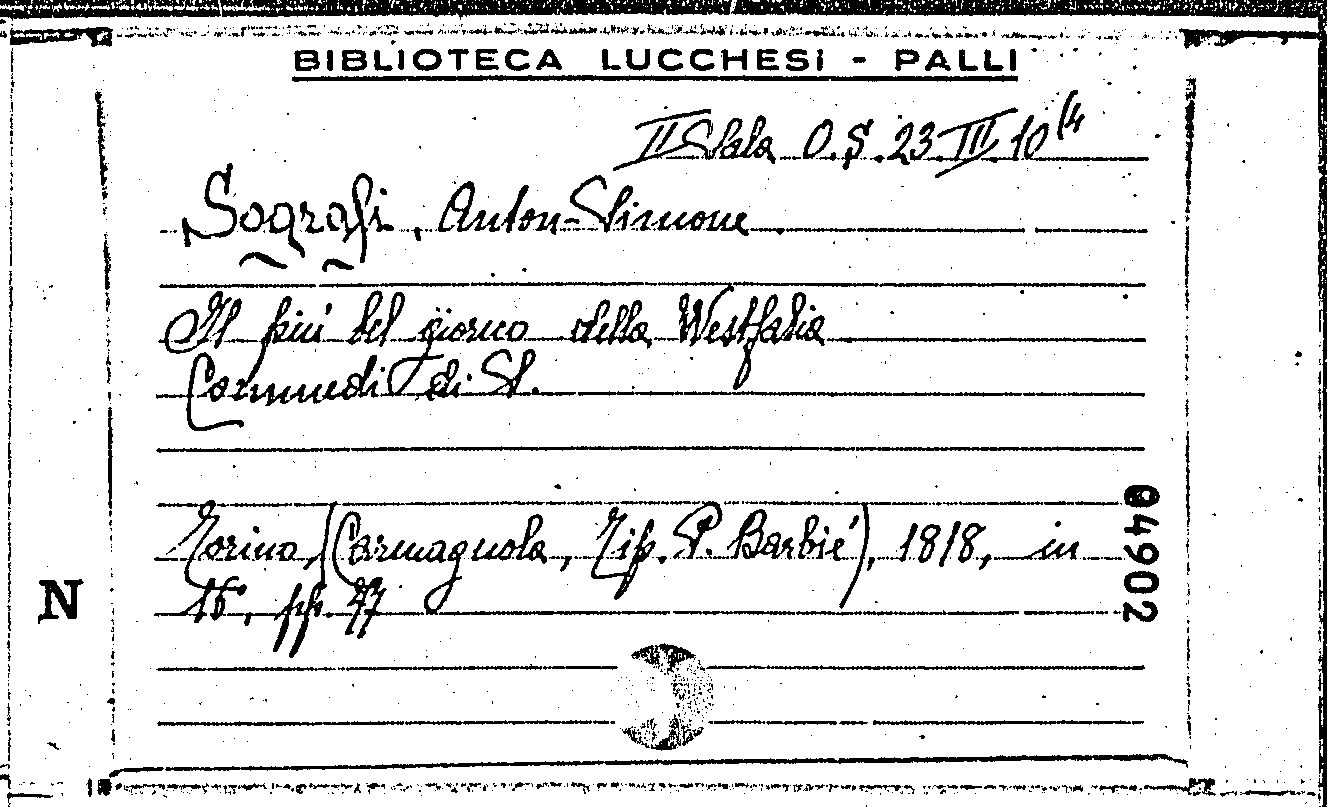 BIBLIOTECA LUCCHESI - PALLI
II Sala O.S. 23.III.10(4
Sografi, Anton-Simone
Il più bel giorno della Westfalia
Commedia di S.
Torino, (Carmagnola, Tip. P. Barbié), 1818, in
16°, pp. 47
N
04902